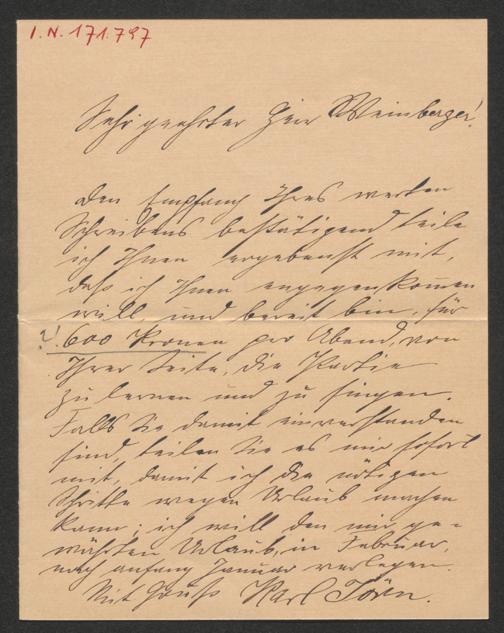 I.N. 171.797
Sehr geehrter Herr Weinberger!
Den Empfang Ihres werten
Schreibens bestätigend teile
ich Ihnen ergebenst mit,
daß ich Ihnen entgegenkommen
will, und bereit bin, für
?! 600 Kronen per Abend, von
Ihrer Seite, die Partie
zu lernen und zu singen.
Falls Sie damit einverstanden
sind, teilen Sie es mir sofort
mit, damit ich die nötigen
Schritte wegen Urlaub machen
kann; ich will den mir ge-
währten Urlaub, in Februar,
nach anfang Januar verlegen.
Mit Gruß Karl Jörn.